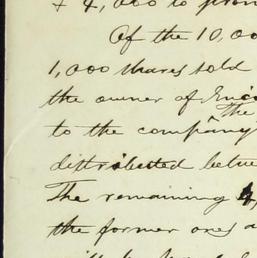 & 4,000 to prom
Of the 10,00
1,000 shares sold
the owner of
The
to the company
distributed betwe
The remaining 4,
the former ones a